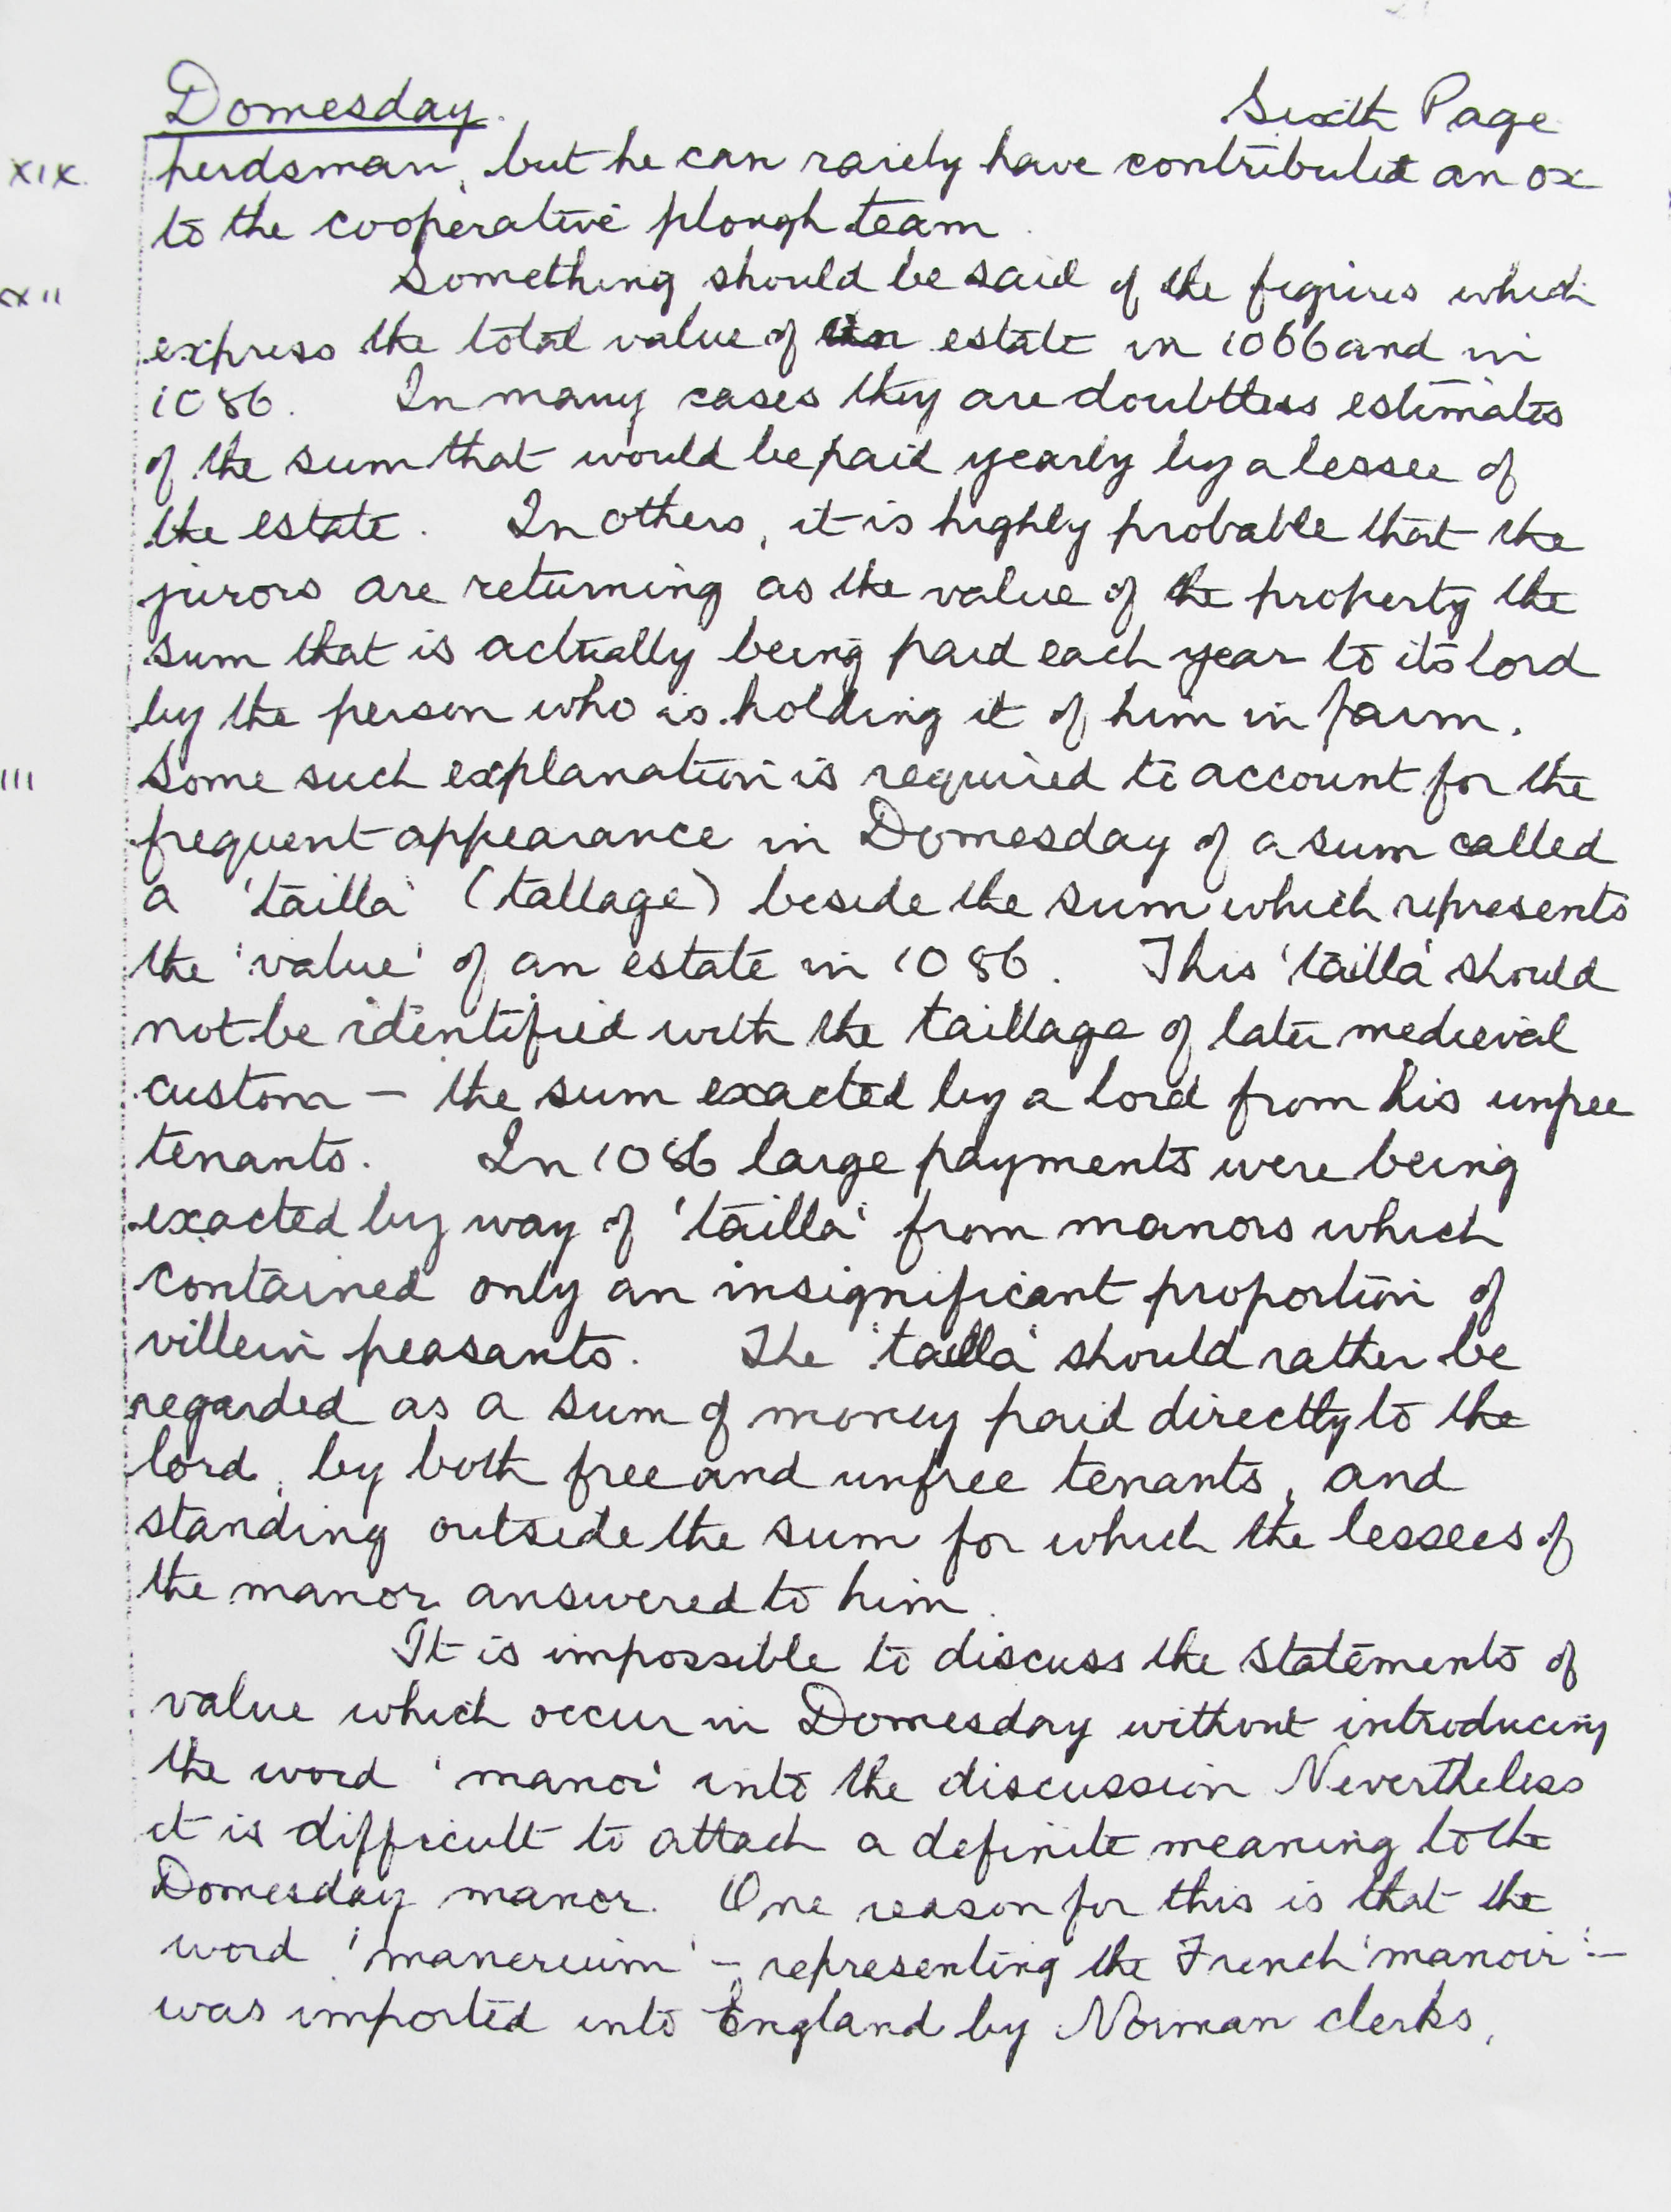 Domesday. Sixth Page
xix. herdsman, but he can rarely have contributed an ox
to the cooperative plough team.
xxii Something should be said of the figures which
express the total value of an estate in 1066 and in
1086. In many cases they are doubtless estimates
of the sum that would be paid yearly by a lessee of
the estate. In others, it is highly probable that the
jurors are returning as the value of the property the
sum that is actually being paid each year to its lord
by the person who is holding it of him in farm.
iii Some such explanation is required to account for the
frequent appearance in Domesday of a sum called
a 'tailla' (tallage) beside the sum which represents
the 'value' of an estate in 1086. This 'tailla' should
not be identified with the taillage of later medieval
custom – the sum exacted by a lord from his unfree
tenants. In 1086 large payments were being
exacted by way of 'tailla' from manors which
contained only an insignificant proportion of
villein peasants. The 'tailla' should rather be
regarded as a sum of money paid directly to the
lord, by both free and unfree tenants, and
standing outside the sum for which the lessees of
the manor answered to him.
It is impossible to discuss the statements of
value which occur in Domesday without introducing
the word 'manor' into the discussion Nevertheless
it is difficult to attach a definite meaning to the
Domesday manor. One reason for this is that the
word 'manerium' – representing the French 'manoir' –
was imported into England by Norman clerks,